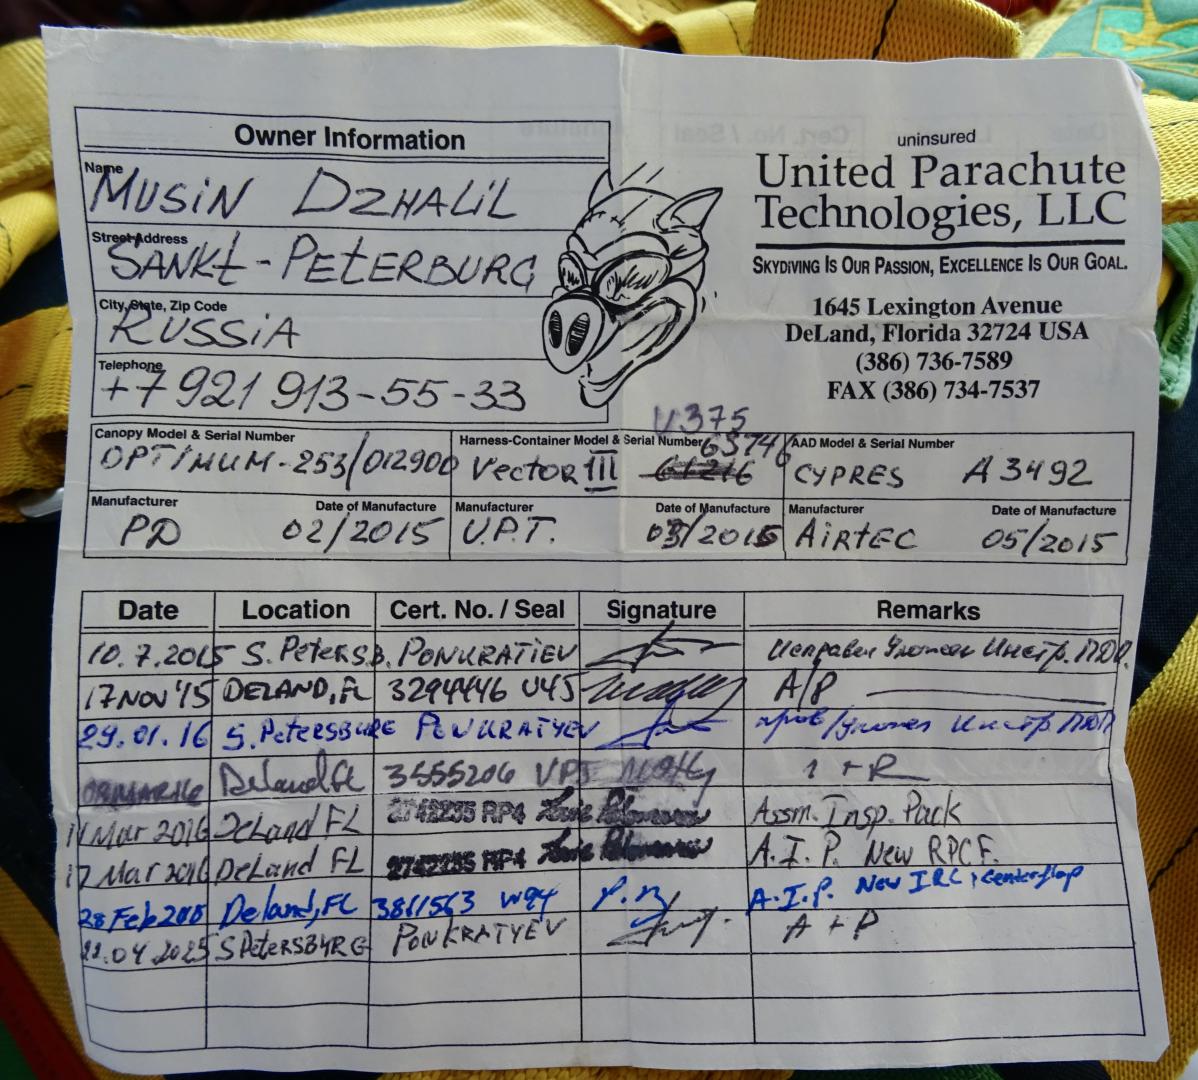 Owner Information
Name
MUSiN DZHALiL
Street Address
SANKt - PEtERBURG
City, State, Zip Code
RUSSiA
Telephone
+7 921 913-55-33
uninsured
United Parachute
Technologies, LLC
SKYDIVING IS OUR PASSION, EXCELLENCE IS OUR GOAL.
1645 Lexington Avenue
DeLand, Florida 32724 USA
(386) 736-7589
FAX (386) 734-7537
V375
Canopy Model & Serial Number Harness-Container Model & Serial Number AAD Model & Serial Number
OPTIMUM-253/012900 Vector III 63746 CYPRES A 3492
Manufacturer Date of Manufacture Manufacturer Date of Manufacture Manufacturer Date of Manufacture
PD 02/2015 U.P.T. 03/2015 AiRtEC 05/2015
Date Location Cert. No. / Seal Signature Remarks
10.7.2015 S. PetersB. PONKRATIEV Исправен Уложен Инстр. ПДП.
17 NOV '15 DELAND, FL 3294446 U45 A/P
29.01.16 S. PETERSBURG PONKRATYEV Инстр ПДП
Deland FL 3555206 I + R
11 Mar 2016 DeLand FL Assm. Insp. Pack
17 Mar 2016 DeLand FL A. I. P. New RPCF.
28 Feb Deland, FL 3811563 W94 A.I.P. New IRC, centerflap
22.04.2025 S PETERSBURG PONKRATYEV A + P